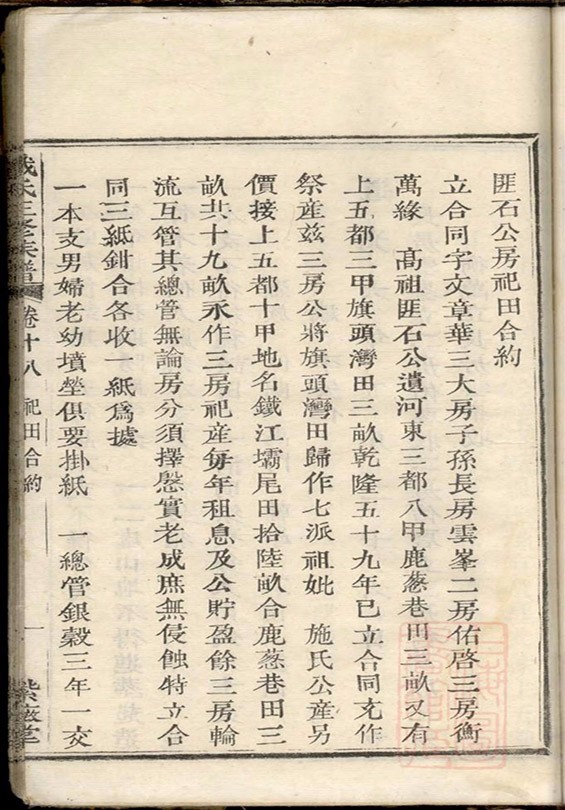 匪石公房祀田合約
立合同字文章華三大房子孫長房雲峯二房佑啓三房衡
萬緣　高祖匪石公遺河東三都八甲鹿葱巷田三畝又有
上五都三甲旗頭灣田三畝乾隆五十九年已立合同充作
祭産兹三房公將旗頭灣田歸作七派祖妣　施氏公産另
價接上五都十甲地名鐵江壩尾田拾陸畝合鹿葱巷田三
畝共十九畝永作三房祀産每年租息及公貯盈餘三房輪
流互管其總管無論房分須擇慇實老成庶無侵蝕特立合
同三紙鉗合各收一紙爲據
一本支男婦老幼墳塋俱要掛紙　一總管銀穀三年一交
氏三修族譜　卷十八　祀田合約　一　紫薇堂